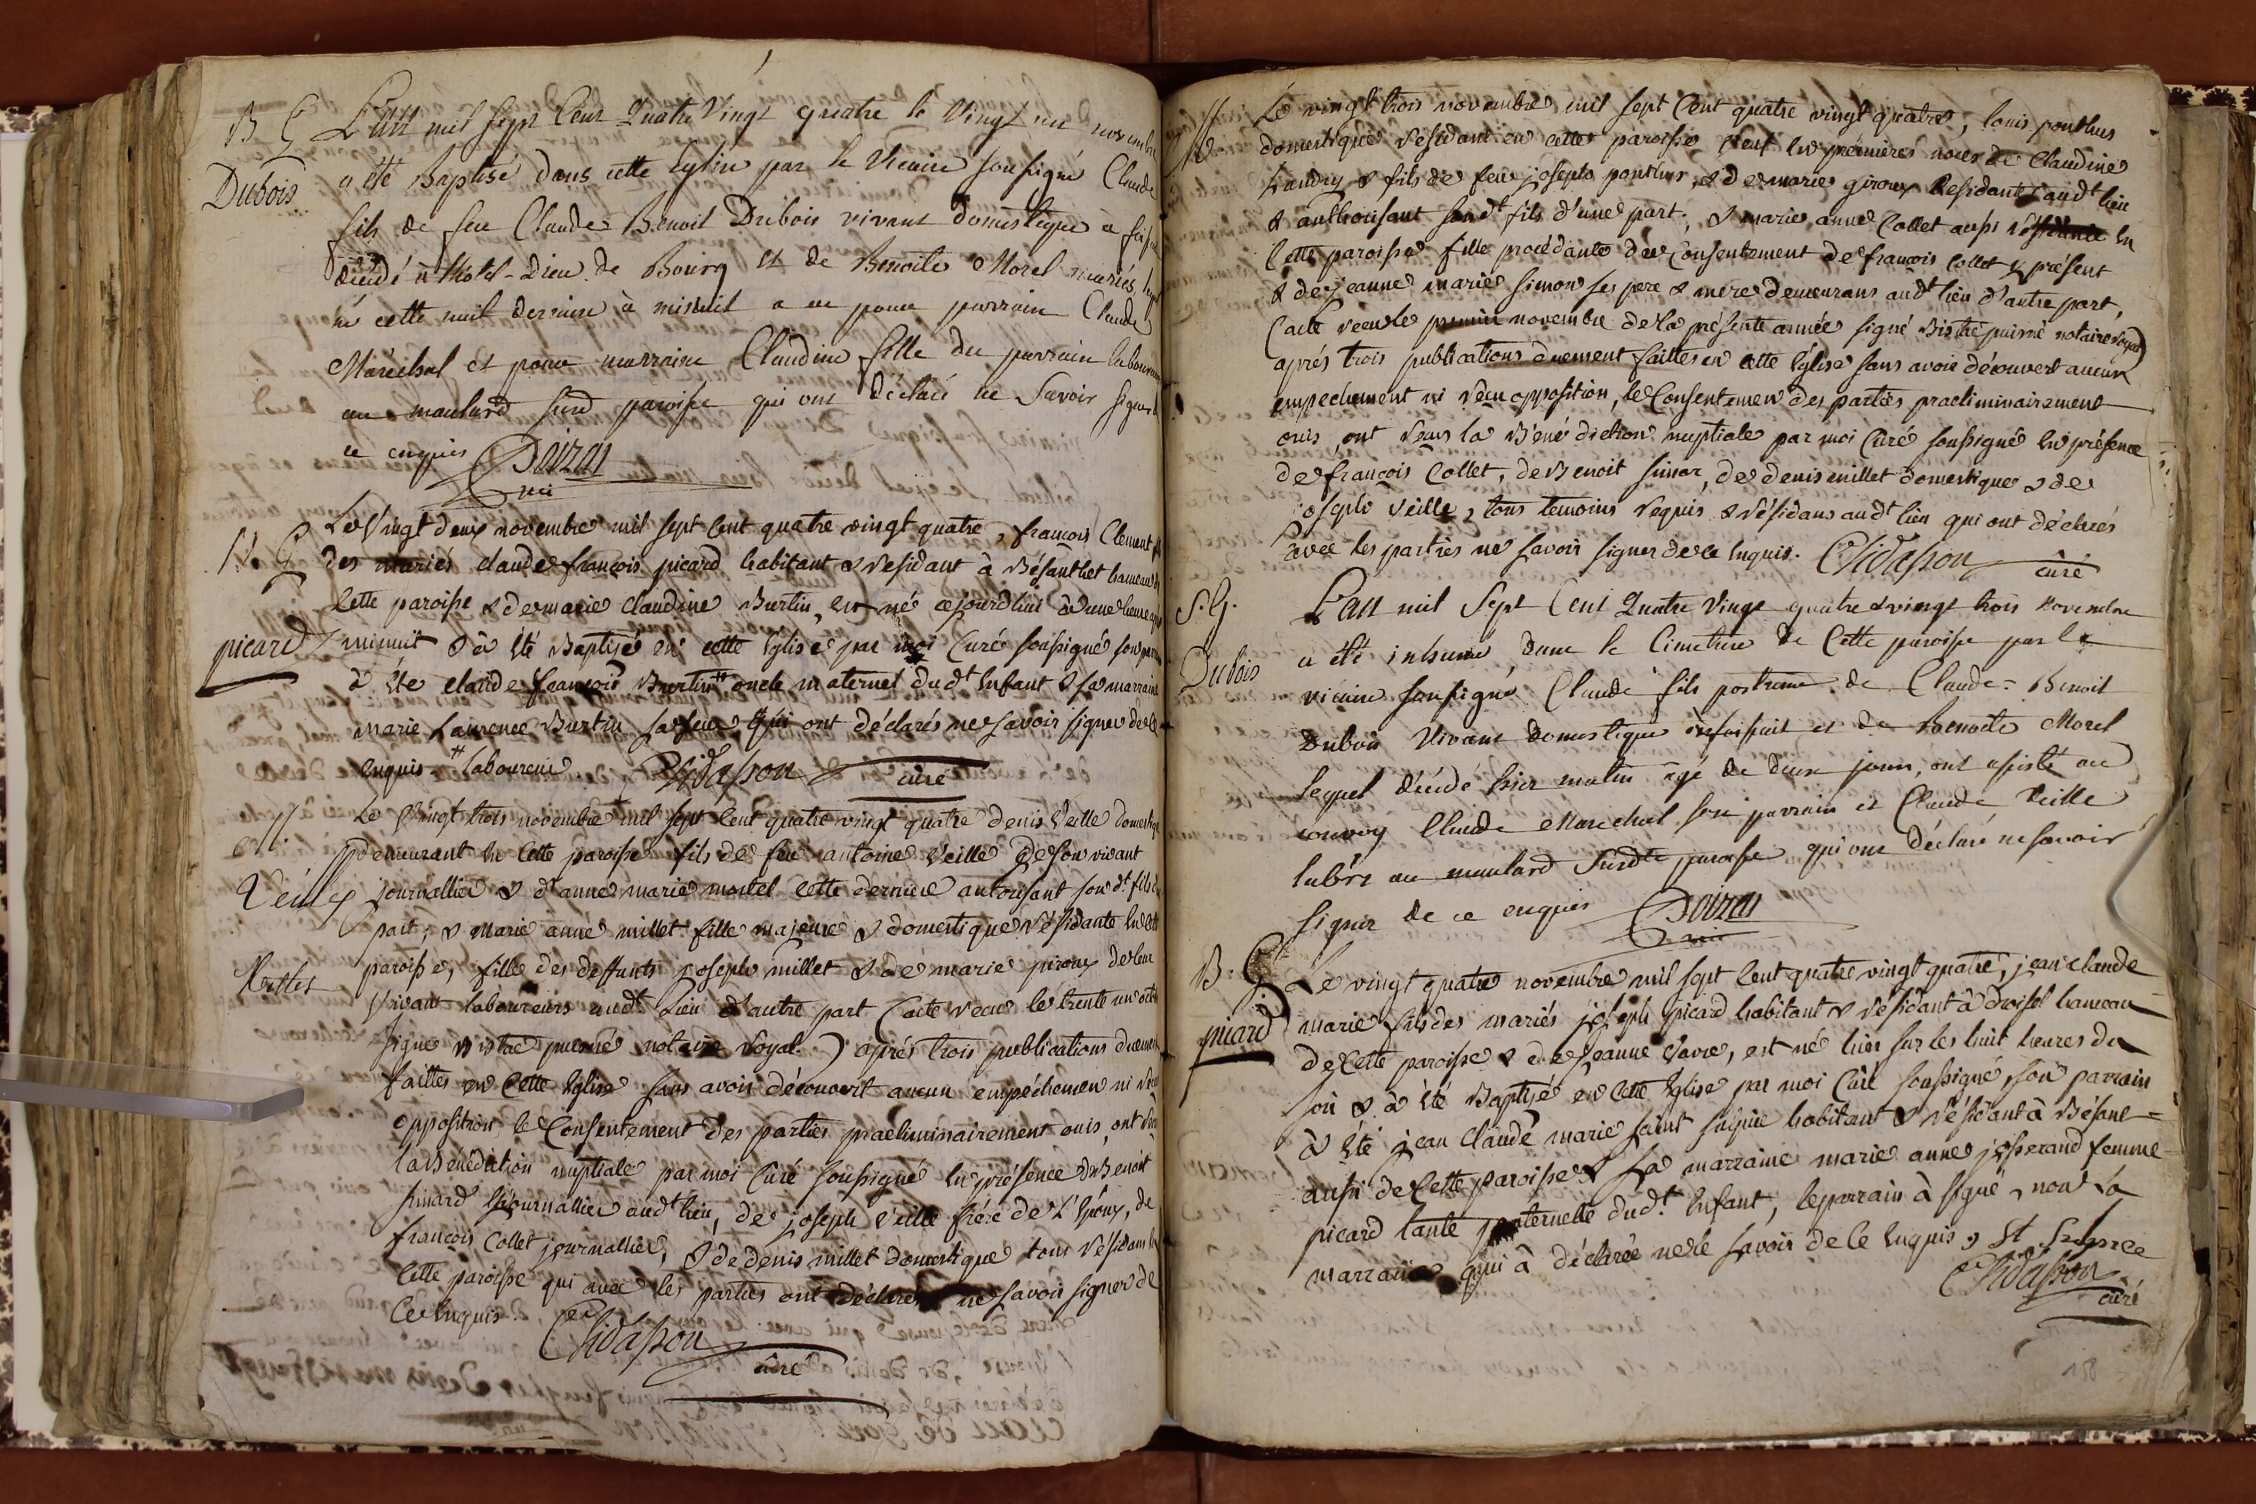 B G L'an mil sept Cent Quatre Vingt quatre le Vingt un novembre
Dubois a été Baptisé dans cette Eglise par le Vicaire soussigné Claude
fils de feu Claude Benoit Dubois vivant domestique à
décédé à l'hotel-Dieu de Bourg et de Benoite Morel mariés
né cette nuit derniere à minuit a eu pour parrain Claude
Maréchal et pour marraine Claudine fille du parrain
au moulard sur paroisse qui ont déclaré ne Savoir signer
ce enquis Doizas
vic
Le Vingt deux novembre mil sept Cent quatre vingt quatre, françois Clement
B. G des mariés claude françois picard habitant & residant à Bésantlet hameau de
Cette paroisse & de marie claudine Burtin, est né cejourdhui à une heure après
picard minuit & à été Baptisé en cette Eglise par moi Curé soussigné son parrain
à été claude françois Burtin # oncle maternel dudt Enfant & sa marraine
marie Laurence Burtin sa soeur qui ont déclarés ne savoir signer de ce
enquis # laboureur Chidasson curé
M. Le Vingt trois novembre mil sept Cent quatre vingt quatre denis Veille domestique
demeurant en Cette paroisse fils de feu antoine Veille de son vivant
Veille journallier & dt anne marie mortel cette derniere autorisant son dt fils
part; & Marie anne millet fille majeure & domestique résidante en cette
Millet paroisse, fille des deffunts joseph millet & de marie piroux de leur
vivant laboureurs audt Lieu d'autre part (acte recu le trente un
signé Bistac puisné notaire Royal) après trois publications duement
faittes en Cette Eglise sans avoir découvert aucun empéchemen ni
opposition, le Consentement des parties praeliminairement ouis, ont
la Bénédiction nuptiale par moi Curé soussigné en présence de Benoit
simard journallier audt lieu, de joseph Veille frére de l'Epoux, de
françois Collet journallier, & de denis millet domestique tous résidans en
Cette paroisse qui avec les parties ont déclarés ne savoir signer de
Ce Enquis Chidasson
curé
M. Le vingt trois novembre mil sept Cent quatre vingt quatre, louis ponthus
domestique résidant en cette paroisse veuf en premières noces de Claudine
& fils de feu joseph ponthus, & de marie giroux Residante audt lieu
& authorisant son dt fils d'une part; & marie anne Collet aussi résidante en
Cette paroisse fille procédante du Consentement de françois Collet y présent
& de jeanne marie simon ses pere & mere demeurans audt lieu d'autre part,
(acte recu le premier novembre de la présente année signé Bistac puisné notaire Royal)
aprés trois publications duement faittes en cette Eglise sans avoir découvert aucun
empechement ni recu opposition, le Consentemen des parties praeliminairement
ouis, ont recus la Béné diction nuptiale par moi Curé soussigné en présence
de françois Collet, de Benoit simar, de denis millet domestique & de
joseph Veille, tous temoins requis & résidans audt lieu qui ont déclarés
avec les parties ne savoir signer de ce enquis. Chidasson
curé
S. G. L'an mil Sept Cent Quatre Vingt quatre & vingt trois Novembre
a été inhumé dans le Cimetiere de Cette paroisse par le
Dubois vicaire soussigné Claude fils postume de Claude = Benoit
Dubois Vivant Domestique et de Benoite Morel
lequel décédé hier matin agé de deux jours, ont assisté au
convoy Claude Marechal son parrain et Claude Veille
labrs au moulard susdte paroisse qui ont déclaré ne savoir
signer de ce enquis Doizas
vic
B. G Le vingt quatre novembre mil sept Cent quatre vingt quatre, jean claude
picard marie fils des mariés joseph picard habitant & résidant à Droisel hameau
de Cette paroisse & de jeanne Favre, est né hier sur les huit heures du
soir & à été Baptisé en Cette Eglise par moi Curé soussigné son parrain
à été jean Claude marie saint habitant & résidant à Bésant
aussi de Cette paroisse & sa marraine marie anne josserand femme
picard tante paternelle dudt Enfant, le parrain à signé, non la
marraine qui à déclarée ne le savoir de ce Enquis,
Chidasson
curé
158